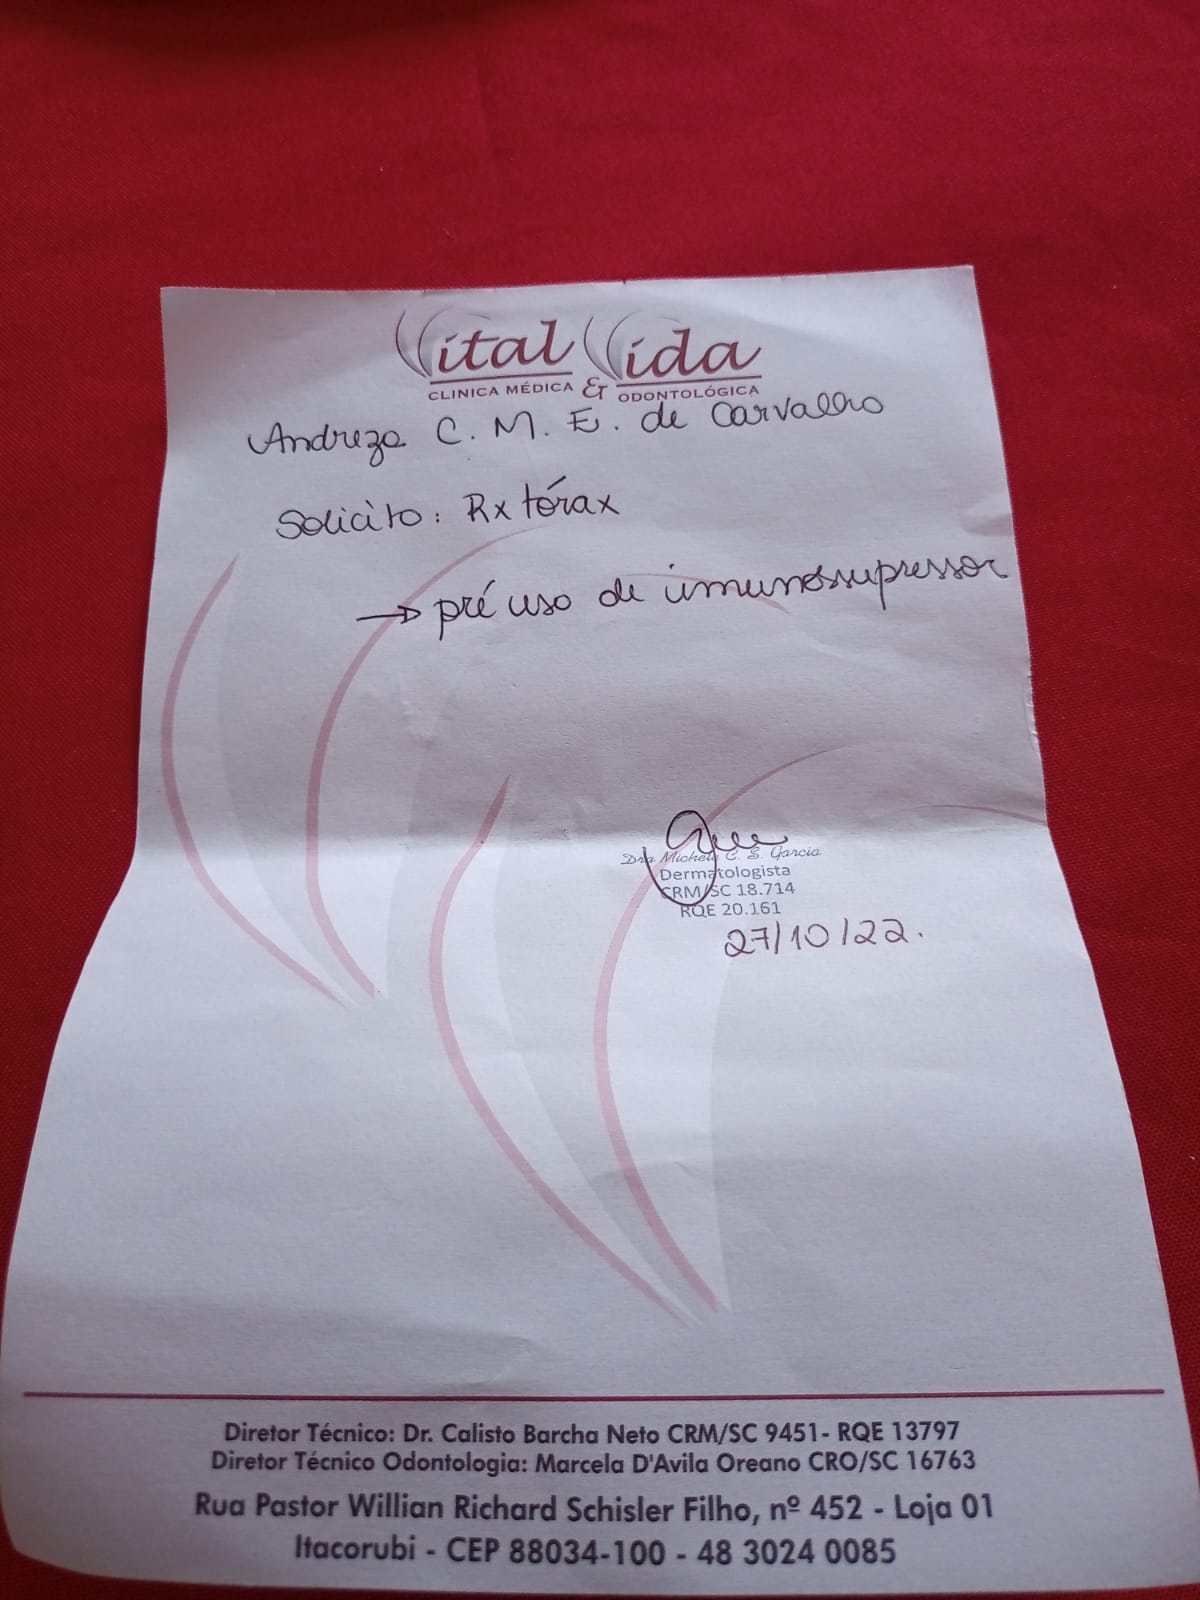 Vital Vida
CLINICA MÉDICA & ODONTOLÓGICA
Andreza C. M. E. de Carvalho
Solicito: Rx tórax
→ pré uso de imunossupressor
Dra Michele C. S. Garcia
Dermatologista
CRM/SC 18.714
RQE 20.161
27/10/22.
Diretor Técnico: Dr. Calisto Barcha Neto CRM/SC 9451- RQE 13797
Diretor Técnico Odontologia: Marcela D'Avila Oreano CRO/SC 16763
Rua Pastor Willian Richard Schisler Filho, nº 452 - Loja 01
Itacorubi - CEP 88034-100 - 48 3024 0085